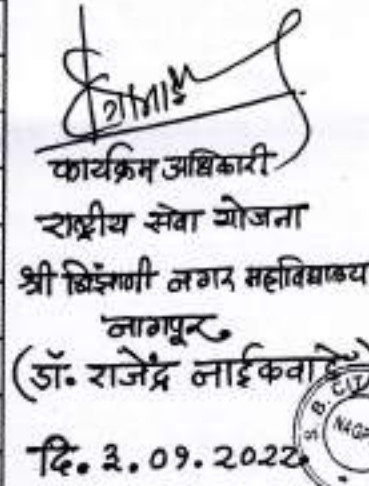 कार्यक्रम अधिकारी
राष्ट्रीय सेवा योजना
श्री बिंझाणी नगर महाविद्यालय
नागपूर.
(डॉ. राजेंद्र नाईकवाडे)
दि. ३.०९.२०२२
S. B. CITY
NAGP